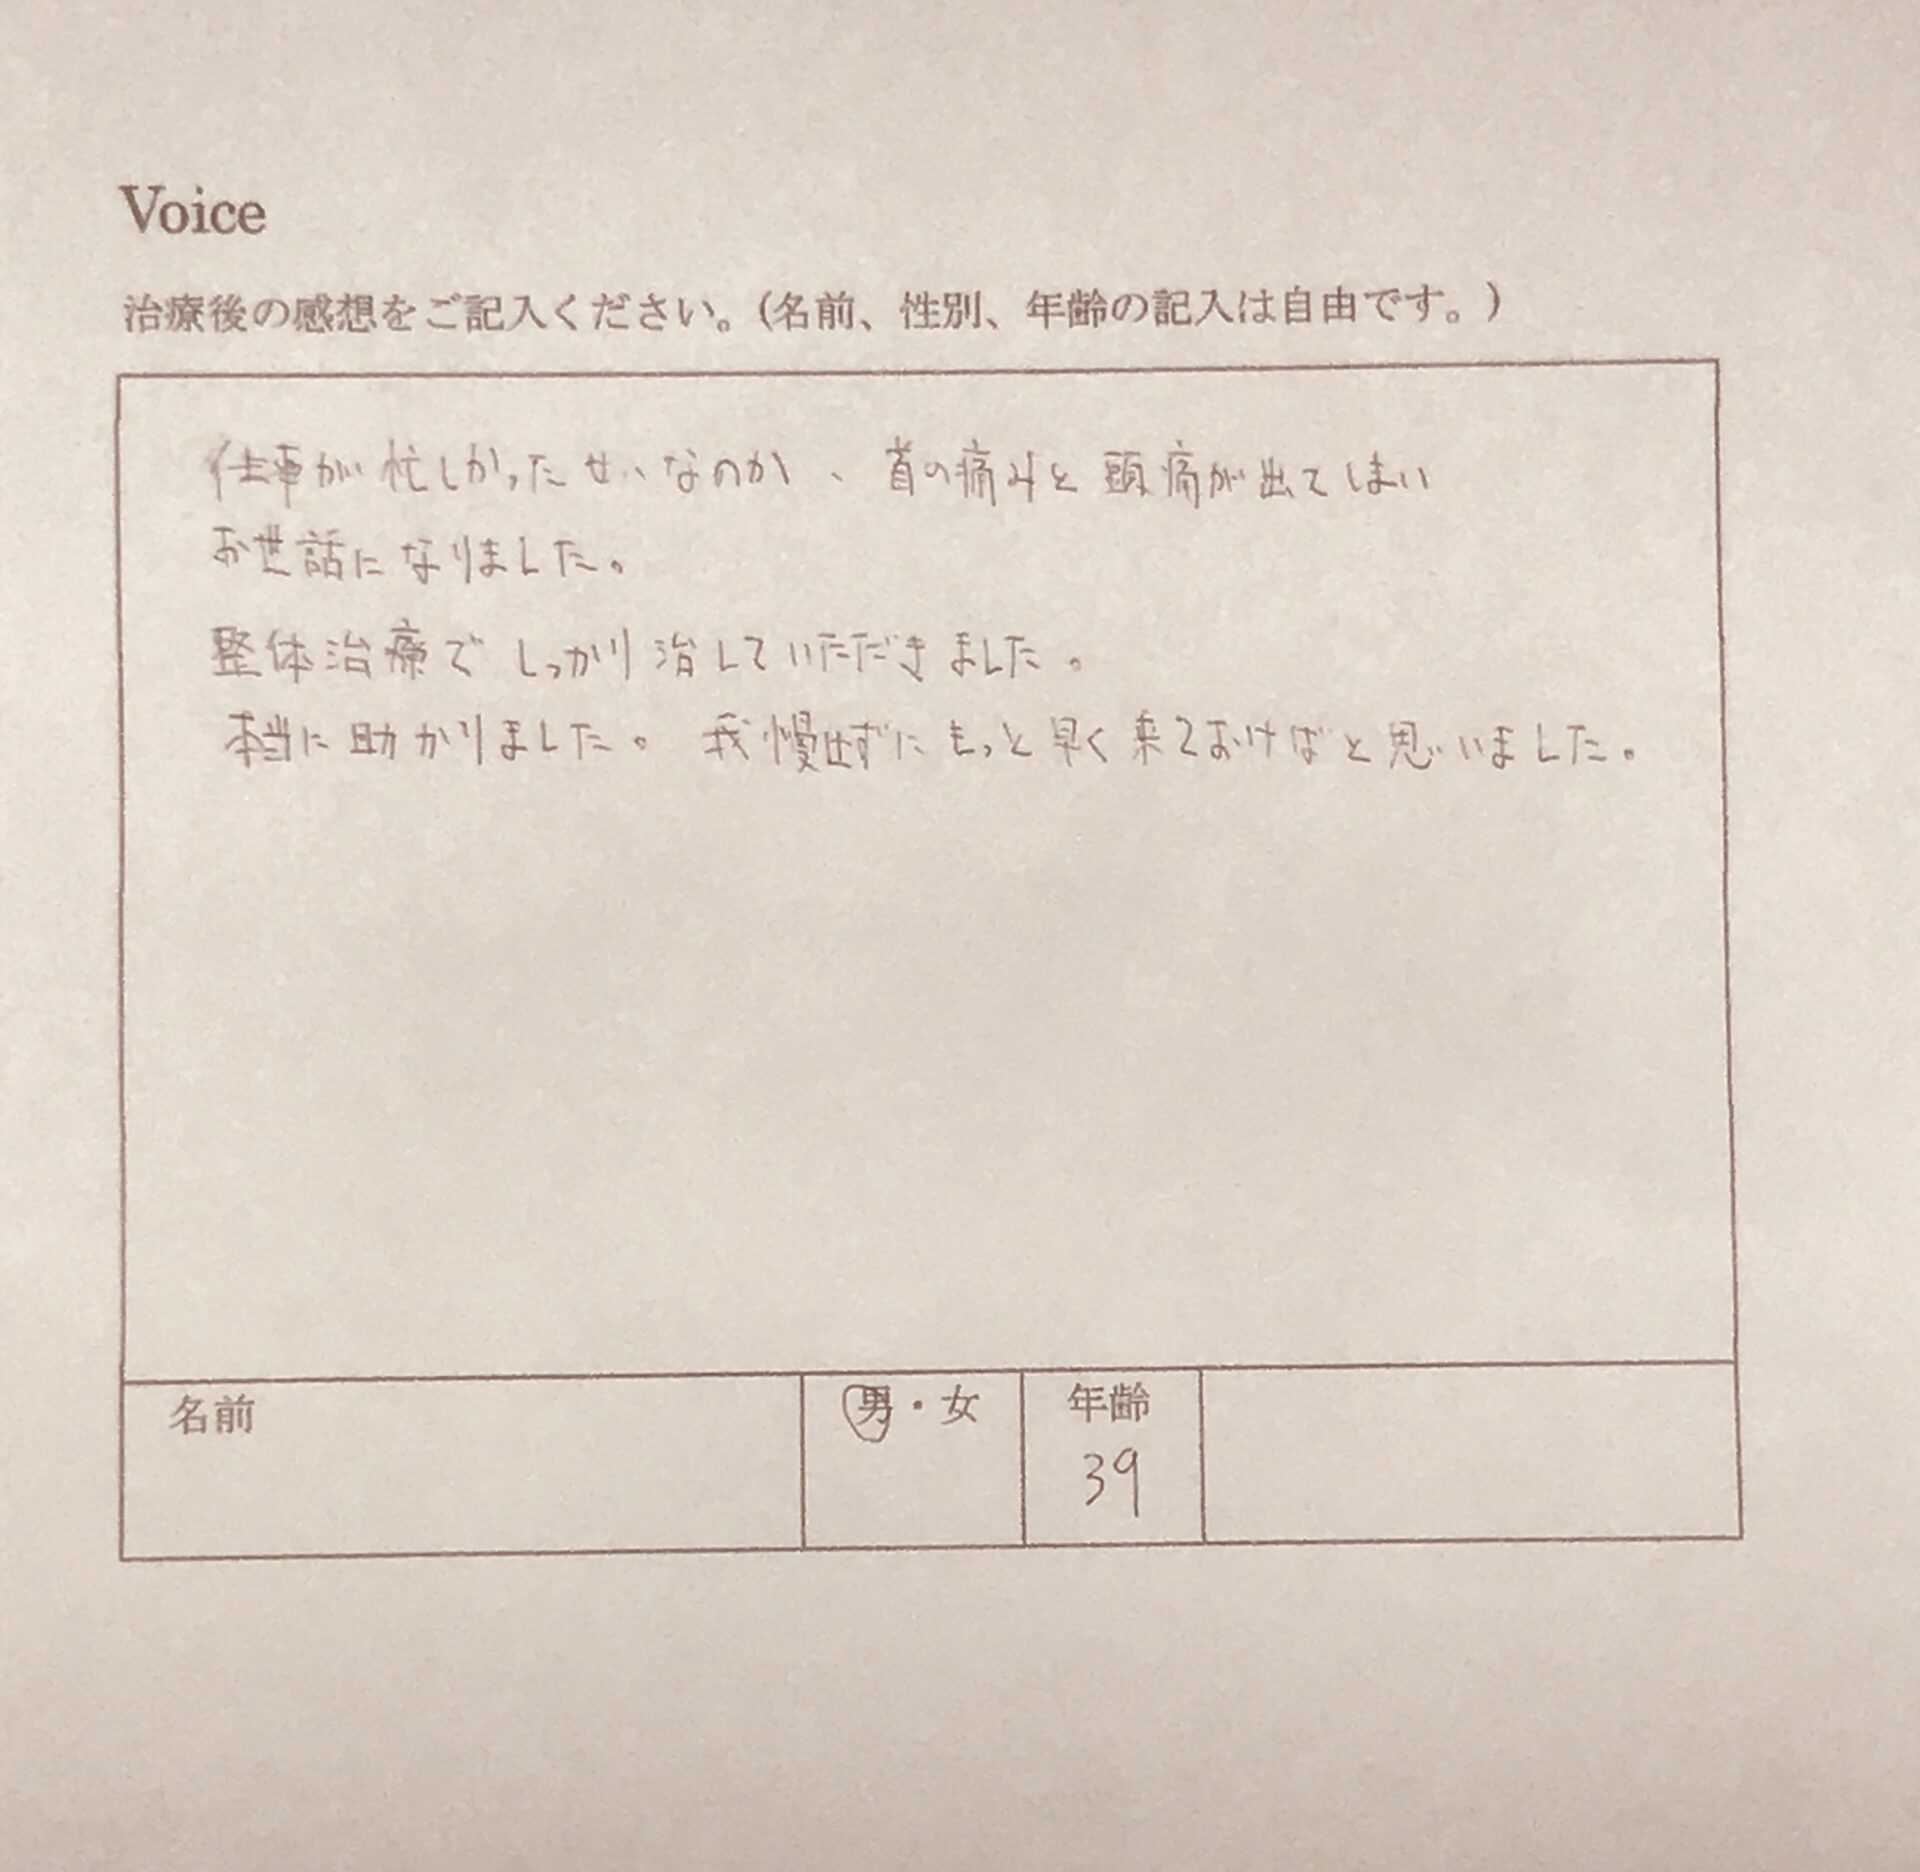 Voice
治療後の感想をご記入ください。(名前、性別、年齢の記入は自由です。)
仕事が忙しかったせいなのか、首の痛みと頭痛が出てしまい
お世話になりました。
整体治療でしっかり治していただきました。
本当に助かりました。我慢せずにもっと早く来ておけばと思いました。
名前 男・女 年齢
39